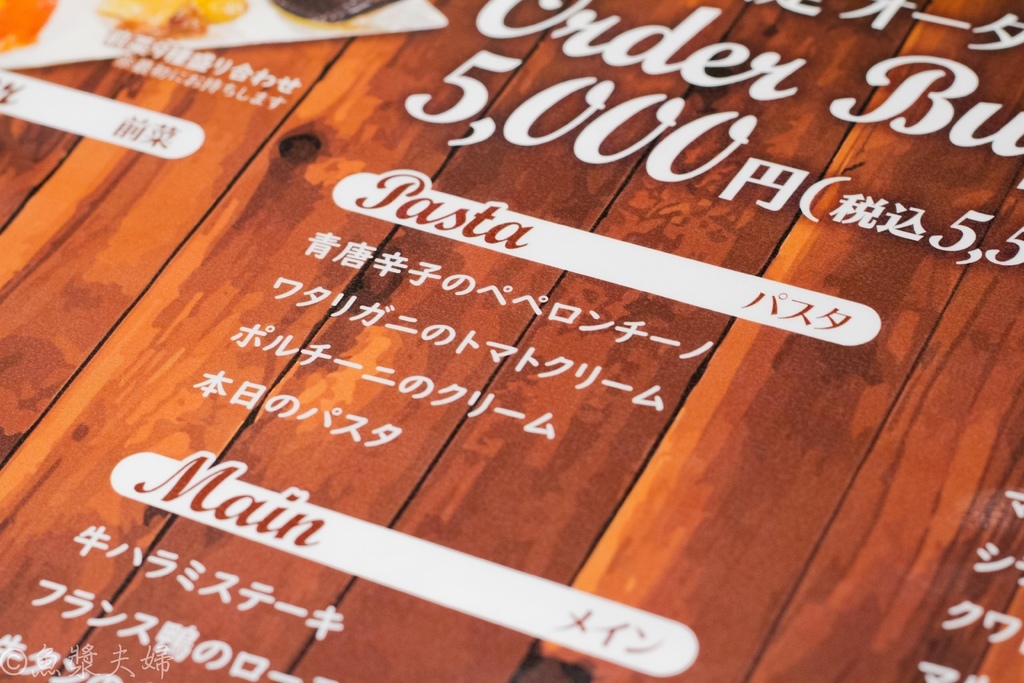 オーダ
Order Bu
5,000円(税込5,5
前菜4種盛り合わせ
※最初にお持ちします
前菜
Pasta パスタ
青唐辛子のペペロンチーノ
ワタリガニのトマトクリーム
ポルチーニのクリーム
本日のパスタ
Main メイン
牛ハラミステーキ
フランス鴨のロー
シー
クワ
マル
©魚漿夫婦